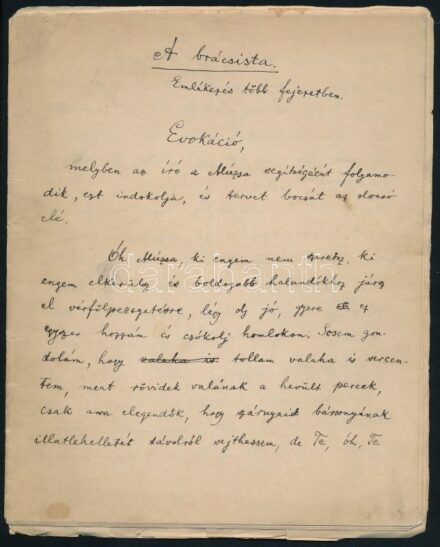 A brácsista.
Emlékezés több fejezetben.
Evokáció,
melyben az író a Múzsa segítségéért folyamo-
dik, ezt indokolja, és tervet bocsát az olvasó
elé.
Óh Múzsa, ki engem nem szeretsz, ki
engem elkerülsz és boldogabb halandókhoz jársz
el vérfölpezsgetésre, légy oly jó, gyere el ez
egyszer hozzám és csókolj homlokon. Sosem gon-
dolám, hogy valaha is tollam valaha is sercen-
tem, mert rövidek valának a hevült percek,
csak arra elegendők, hogy szárnyaid bársonyának
illatlehelletét távolról sejthessem, de Te, óh, Te
darabanth